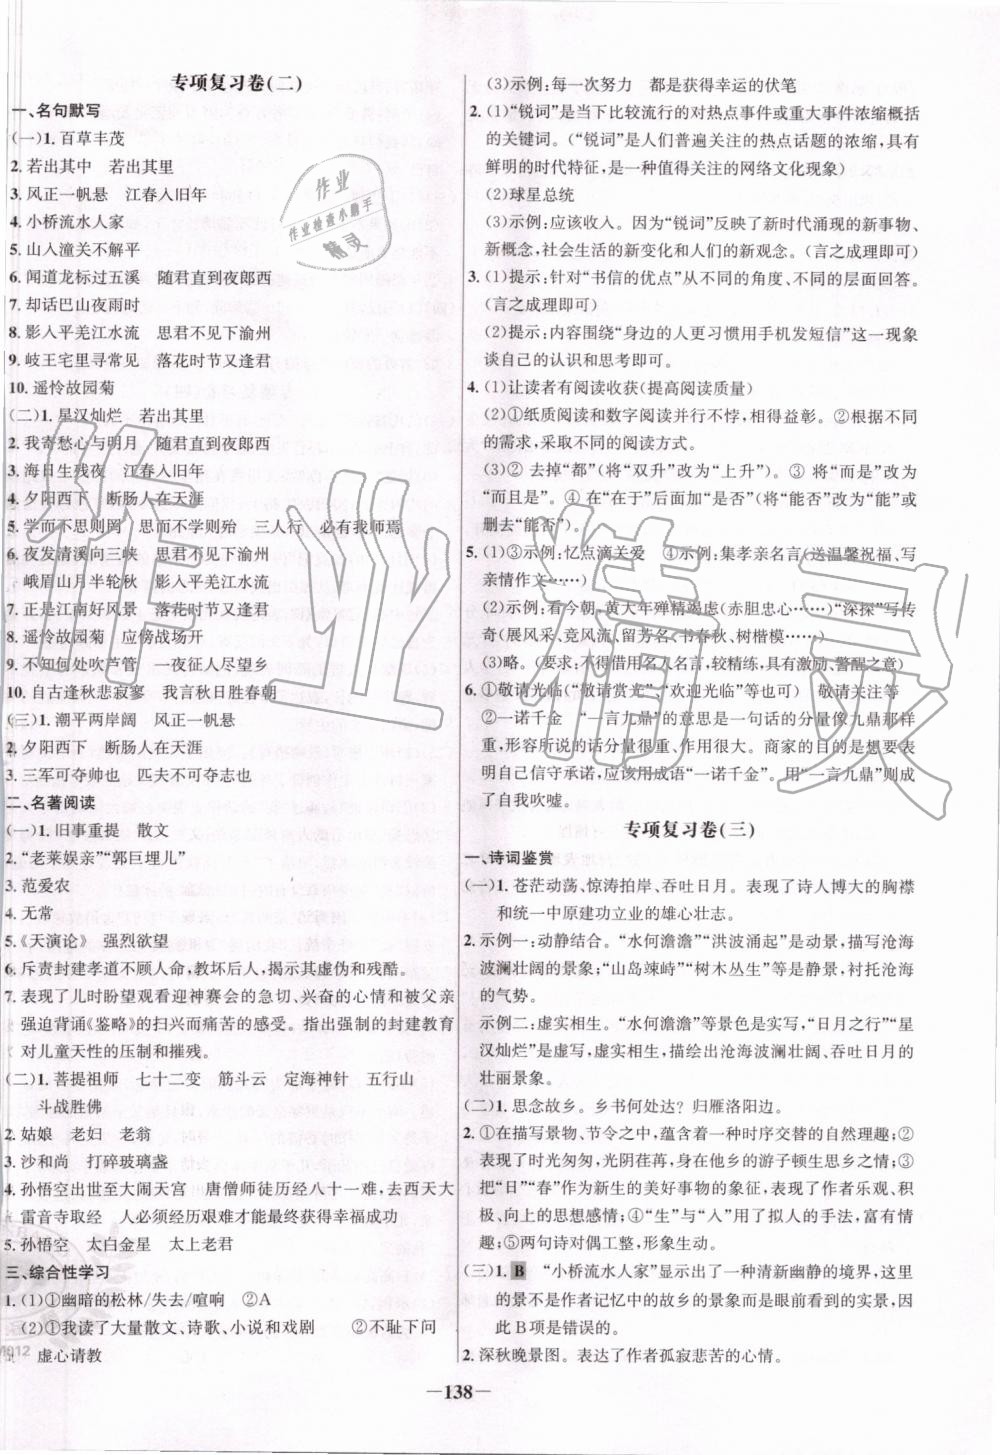 专项复习卷(二)
一、名句默写
(一)1. 百草丰茂
2. 若出其中　若出其里
3. 风正一帆悬　江春入旧年
4. 小桥流水人家
5. 山入潼关不解平
6. 闻道龙标过五溪　随君直到夜郎西
7. 却话巴山夜雨时
8. 影入平羌江水流　思君不见下渝州
9. 岐王宅里寻常见　落花时节又逢君
10. 遥怜故园菊
(二)1. 星汉灿烂　若出其里
2. 我寄愁心与明月　随君直到夜郎西
3. 海日生残夜　江春入旧年
4. 夕阳西下　断肠人在天涯
5. 学而不思则罔　思而不学则殆　三人行　必有我师焉
6. 夜发清溪向三峡　思君不见下渝州
峨眉山月半轮秋　影入平羌江水流
7. 正是江南好风景　落花时节又逢君
8. 遥怜故园菊　应傍战场开
9. 不知何处吹芦管　一夜征人尽望乡
10. 自古逢秋悲寂寥　我言秋日胜春朝
(三)1. 潮平两岸阔　风正一帆悬
2. 夕阳西下　断肠人在天涯
3. 三军可夺帅也　匹夫不可夺志也
二、名著阅读
(一)1. 旧事重提　散文
2. “老莱娱亲”“郭巨埋儿”
3. 范爱农
4. 无常
5. 《天演论》　强烈欲望
6. 斥责封建孝道不顾人命,教坏后人,揭示其虚伪和残酷。
7. 表现了儿时盼望观看迎神赛会的急切、兴奋的心情和被父亲
强迫背诵《鉴略》的扫兴而痛苦的感受。指出强制的封建教育
对儿童天性的压制和摧残。
(二)1. 菩提祖师　七十二变　筋斗云　定海神针　五行山
斗战胜佛
2. 姑娘　老妇　老翁
3. 沙和尚　打碎玻璃盏
4. 孙悟空出世至大闹天宫　唐僧师徒历经八十一难,去西天大
雷音寺取经　人必须经历艰难才能最终获得幸福成功
5. 孙悟空　太白金星　太上老君
三、综合性学习
1. (1)①幽暗的松林/失去/喧啊　②A
(2)①我读了大量散文、诗歌、小说和戏剧　②不耻下问
虚心请教
(3)示例:每一次努力　都是获得幸运的伏笔
2. (1)“锐词”是当下比较流行的对热点事件或重大事件浓缩概括
的关键词。(“锐词”是人们普遍关注的热点话题的浓缩,具有
鲜明的时代特征,是一种值得关注的网络文化现象)
(2)球星总统
(3)示例:应该收入。因为“锐词”反映了新时代涌现的新事物、
新概念,社会生活的新变化和人们的新观念。(言之成理即可)
3. (1)提示:针对“书信的优点”从不同的角度、不同的层面回答。
(言之成理即可)
(2)提示:内容围绕“身边的人更习惯用手机发短信”这一现象
谈自己的认识和思考即可。
4. (1)让读者有阅读收获(提高阅读质量)
(2)①纸质阅读和数字阅读并行不悖,相得益彰。②根据不同
的需求,采取不同的阅读方式。
(3)② 去掉“都”(将“双升”改为“上升”)。③ 将“而是”改为
“而且是”。④ 在“在于”后面加“是否”(将“能否”改为“能”或
删去“能否”)。
5. (1)③示例:忆点滴关爱　④示例:集孝亲名言(送温馨祝福、写
亲情作文……)
(2)示例:看今朝·黄大年殚精竭虑(赤胆忠心……)“深探”写传
奇(展风采、竞风流、留芳名、书春秋、树楷模……)
(3)略。(要求:不得借用名人名言,较精练,具有激励、警醒之意)
6. ①敬请光临(“敬请赏光”“欢迎光临”等也可)　敬请关注等
②一诺千金　“一言九鼎”是一句话的分量像九鼎那样
重,形容所说的话分量很重、作用很大。商家的意图是要表
明自己信守承诺,应该用成语“一诺千金”。用“一言九鼎”则成
了自我吹嘘。
专项复习卷(三)
一、诗词鉴赏
(一)1. 苍茫动荡、惊涛拍岸、吞吐日月。表现了诗人博大的胸襟
和统一中原建功立业的雄心壮志。
2. 示例一:动静结合。“水何澹澹”“洪波涌起”是动景,描写沧海
波澜壮阔的景象;“山岛竦峙”“树木丛生”等是静景,衬托沧海
的气势。
示例二:虚实相生。“水何澹澹”等景色是实写,“日月之行”“星
汉灿烂”是虚写,虚实相生,描绘出沧海波澜壮阔、吞吐日月的
壮丽景象。
(二)1. 思念故乡。乡书何处达? 归雁洛阳边。
2. ①在描写景物、节令之中,蕴含着一种时序交替的自然理趣;②
表现了时光匆匆,光阴荏苒,身在他乡的游子顿生思乡之情;③
把“日”“春”作为新生的美好事物的象征,表现了作者乐观、积
极、向上的思想感情;④“生”与“人”用了拟人的手法,富有情
趣;⑤两句诗对偶工整,形象生动。
(三)1. B　“小桥流水人家”显示出了一种清新幽静的境界,这里
的景不是作者记忆中的故乡的景象而是眼前看到的实景,因
此 B 项是错误的。
2. 深秋晚景图。表达了作者孤寂悲苦的心情。
—138—
作业
作业检查小助手
精灵
作业精灵